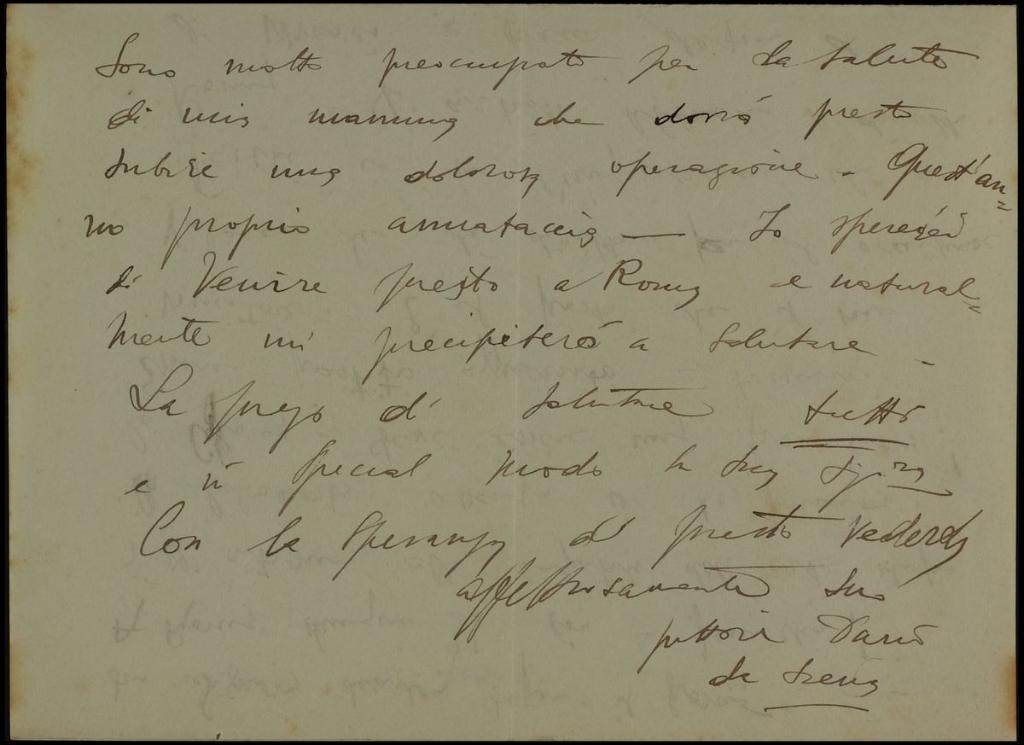 Sono molto preoccupato per la salute
di mia mamma che dovrà presto
subire una dolorosa operazione - Quest'an=
no proprio annataccia — Io spererei
di venire presto a Roma e natural=
mente mi precipiterò a salutare -
La prego di salutare tutti
e in special modo la sua Sig.ra
Con la speranza di presto vederla
affettuosamente suo
pittore Dario
da Siena